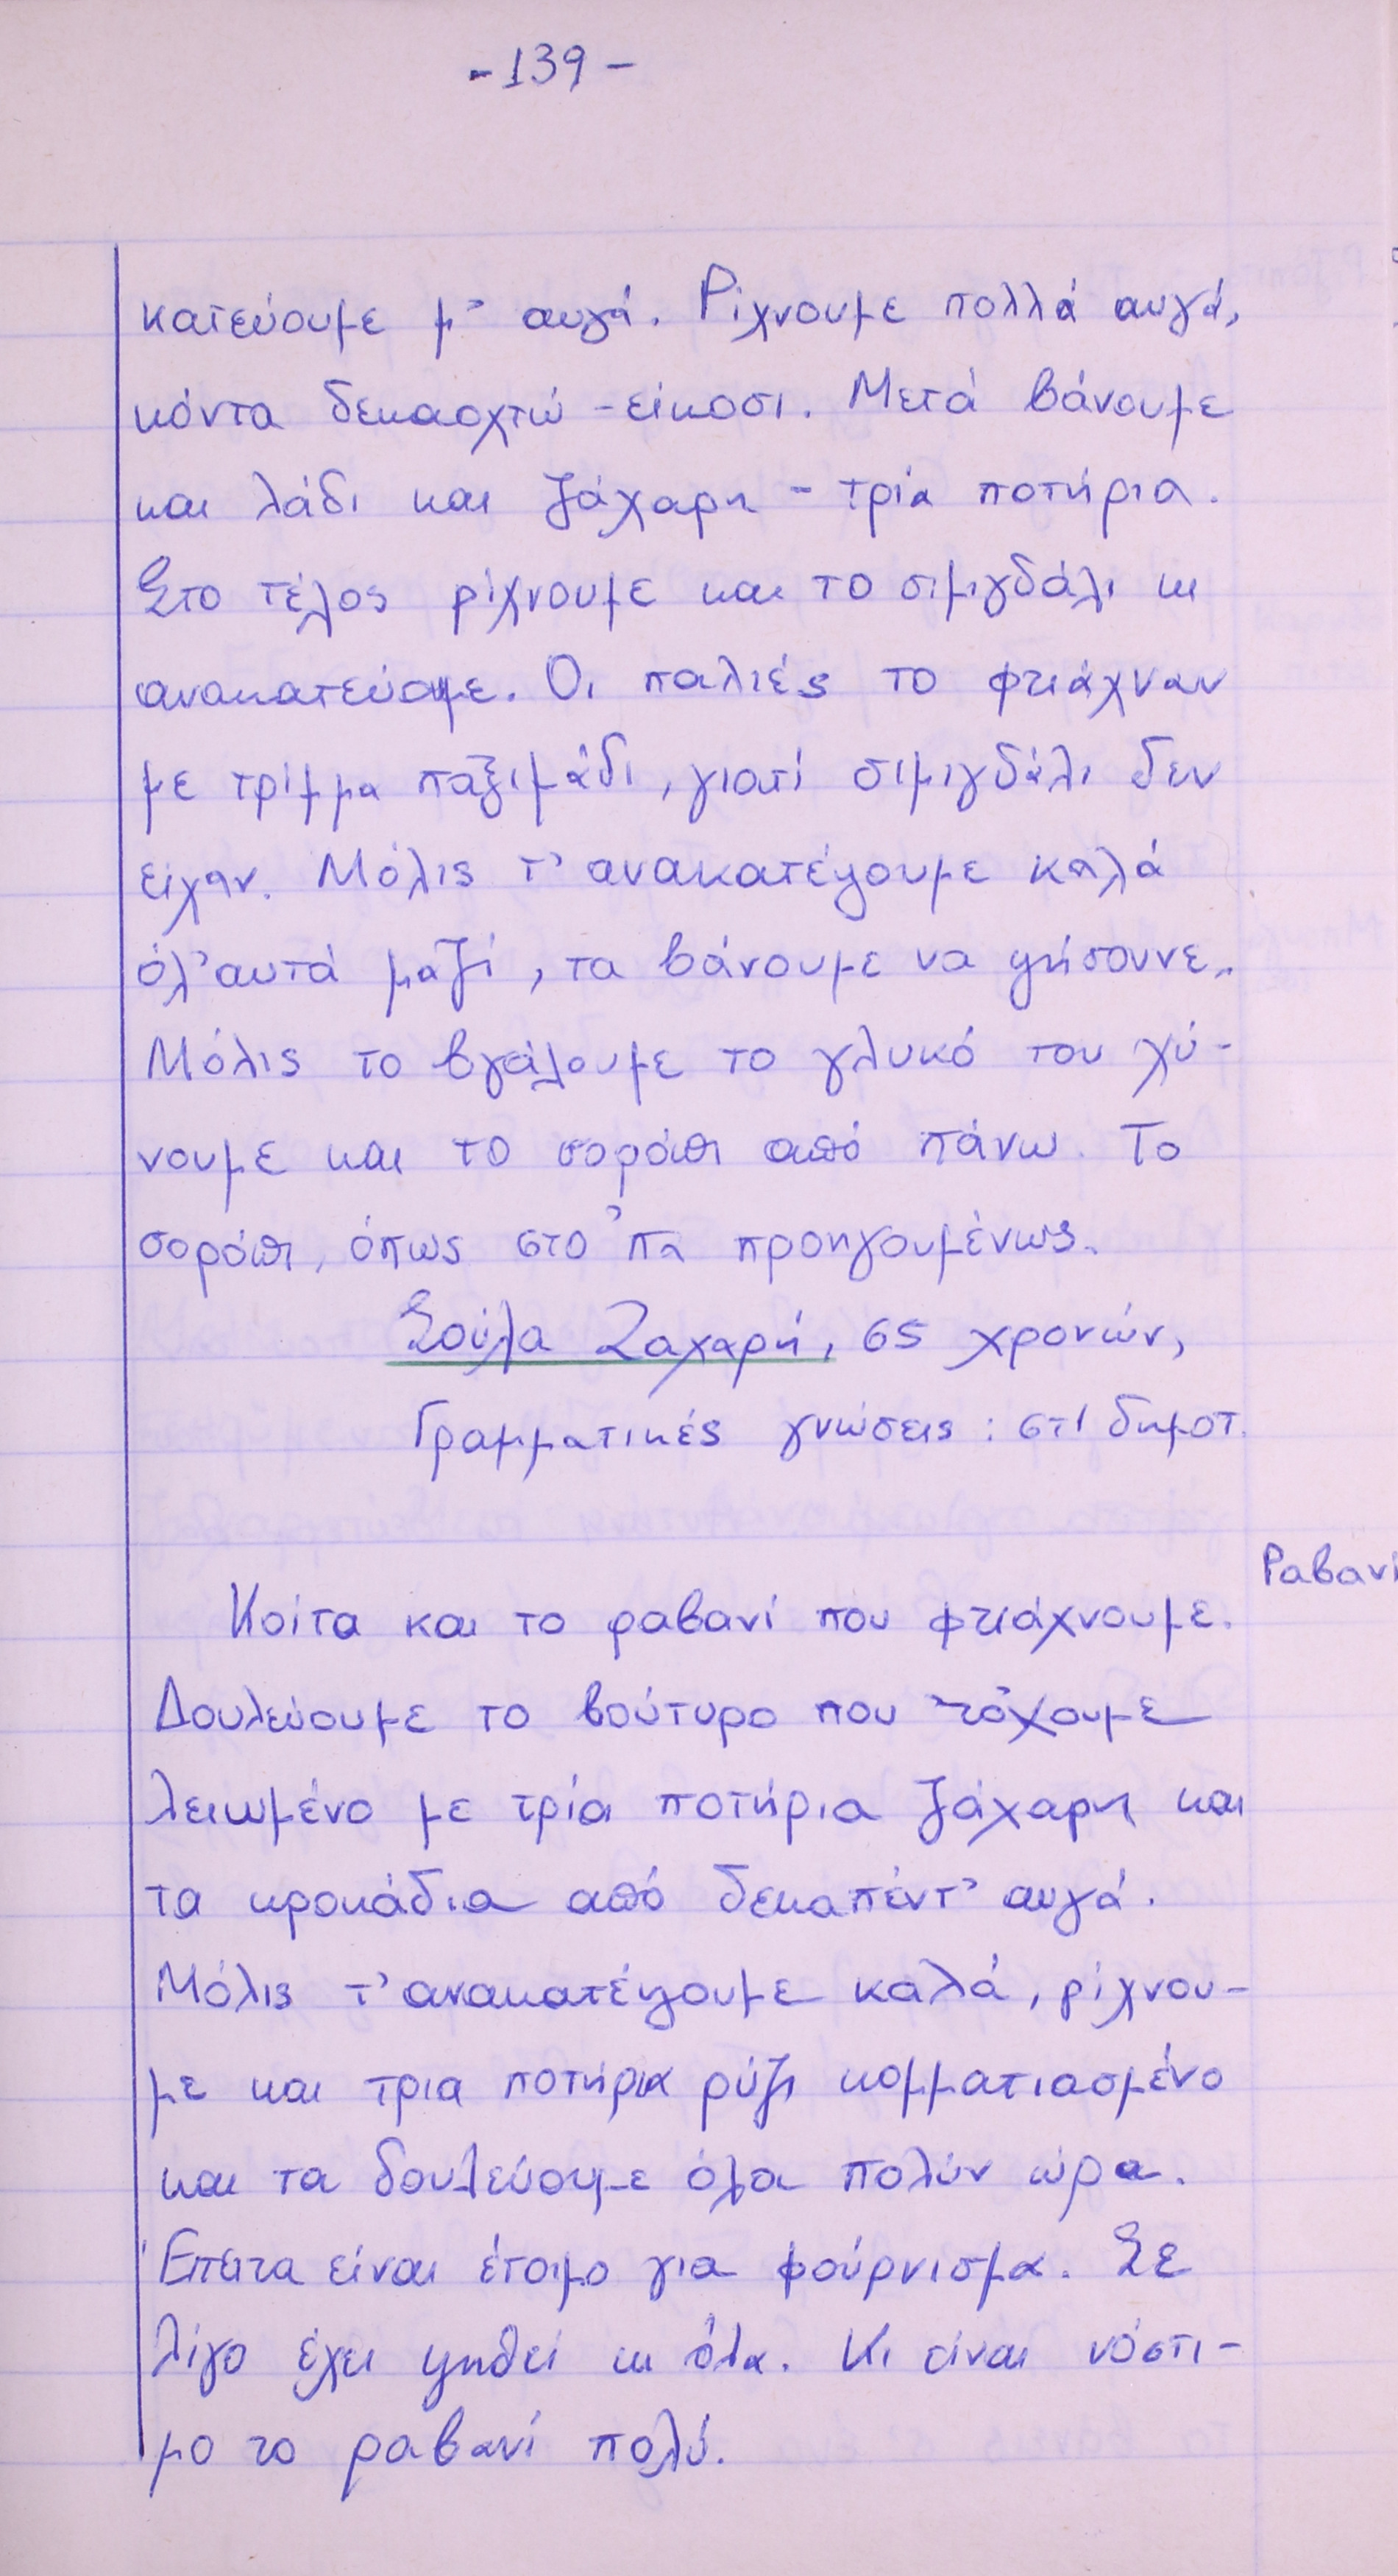 -139-
κατεύουμε μ' αυγά. Ρίχνουμε πολλά αυγά,
κόντα δεκαοχτώ - είκοσι. Μετά βάνουμε
και λάδι και ζάχαρη - τρία ποτήρια.
Στο τέλος ρίχνουμε και το σιμιγδάλι κι
ανακατεύουμε. Οι παλιές το φτιάχναν
με τρίμμα παξιμάδι, γιατί σιμιγδάλι δεν
είχαν. Μόλις τ' ανακατέψουμε καλά
όλ' αυτά μαζί, τα βάνουμε να ψήσουνε.
Μόλις το βγάζουμε το γλυκό του χύ-
νουμε και το σορόπι από πάνω. Το
σορόπι, όπως στο 'πα προηγουμένως.
Σούλα Ζαχαρή, 65 χρονών,
Γραμματικές γνώσεις: στ' δημοτ.
Ραβανί
Κοίτα και το ραβανί που φτιάχνουμε.
Δουλεύουμε το βούτυρο που τόχουμε
λειωμένο με τρία ποτήρια ζάχαρη και
τα κροκάδια από δεκαπέντ' αυγά.
Μόλις τ' ανακατέψουμε καλά, ρίχνου-
με και τρια ποτήρια ρύζι κομματιασμένο
και τα δουλεύουμε όλα πολύν ώρα.
Έπειτα είναι έτοιμο για φούρνισμα. Σε
λίγο έχει ψηθεί κι όλα. Κι είναι νόστι-
μο το ραβανί πολύ.